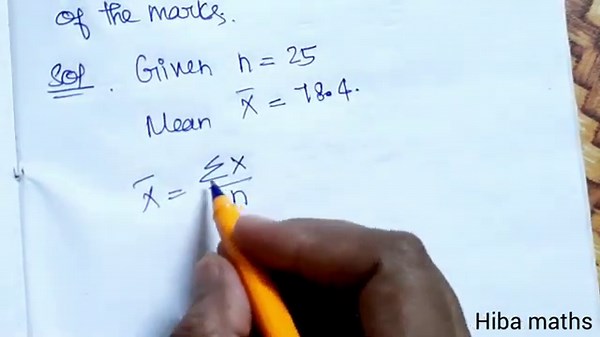 of the marks.
Sol. Given n = 25
Mean x̄ = 78.4.
x̄ = Σx/n
Hiba maths